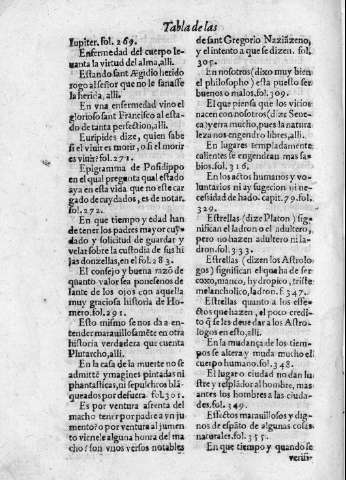 Tabla de las
Iupiter. fol. 269.
Enfermedad del cuerpo le-
uanta la virtud del alma, alli.
Estando sant Ægidio herido
rogo al señor que no le sanasse
la herida, alli.
En vna enfermedad vino el
glorioso sant Francisco al esta-
do de tanta perfection, alli.
Euripides dize, quien sabe
si el viuir es morir, o si el morir
es viuir? fol. 271.
Epigramma de Posidippo
en el qual pregunta qual estado
aya en esta vida que no este car
gado de cuydados, es de notar.
fol. 272.
En que tiempo y edad han
de tener los padres mayor cuy-
dado y solicitud de guardar y
velar sobre la custodia de sus hi
jas donzellas, en el fol. 283.
El consejo y buena razõ de
quanto valor sea ponesenos de-
lante de los ojos con aquella
muy graciosa historia de Ho-
mero. fol. 291.
Esto mismo se nos da a en-
tender marauillosamẽte en otra
historia verdadera que cuenta
Plutarcho, alli.
En la casa de la muerte no se
admittẽ ymagines pintadas ni
phantasticas, ni sepulchros blã-
queados por defuera. fol. 301.
Es por ventura afrenta del
macho tener por padre a vn ju
mento? o por ventura al jumen
to vienele alguna honra del ma
cho? son vnos versos notables
de sant Gregorio Naziãzeno,
y el intento a que se dizen. fol.
305.
En nosotros (dixo muy bien
el philosopho) esta puesto ser
buenos o malos. fol. 309.
El que piensa que los vicios
nacen con nosotros (dize Sene-
ca) yerra mucho, pues la natura
leza nos engendro libres, alli.
En lugares templadamente
calientes se engendran mas sa-
bios. fol. 316.
En los actos humanos y vo-
luntarios ni ay sugecion ni ne-
cessidad de hado. capit. 79. fol.
329.
Estrellas (dize Platon) sig-
nifican el ladron o el adultero,
pero no hazen adultero ni la-
dron. fol. 333.
Estrellas (dizen los Astrolo-
gos) significan el que ha de ser
coxo, manco, hydropico, triste
melancholico, ladron. f. 347.
Estrellas quanto a los effe-
ctos que hazen, el poco credi-
to q̃ se les deue dar a los Astro-
logos en esto, alli.
En la mudança de los tiem-
pos se altera y muda mucho el
cuerpo humano. fol. 348.
El lugar o ciudad no dan lu
stre y resplãdor al hombre, mas
antes los hombres a las ciuda-
des. fol. 349.
Effectos marauillosos y dig-
nos de espãto de algunas cosas
naturales. fol. 355.
En que tiempo y quando se